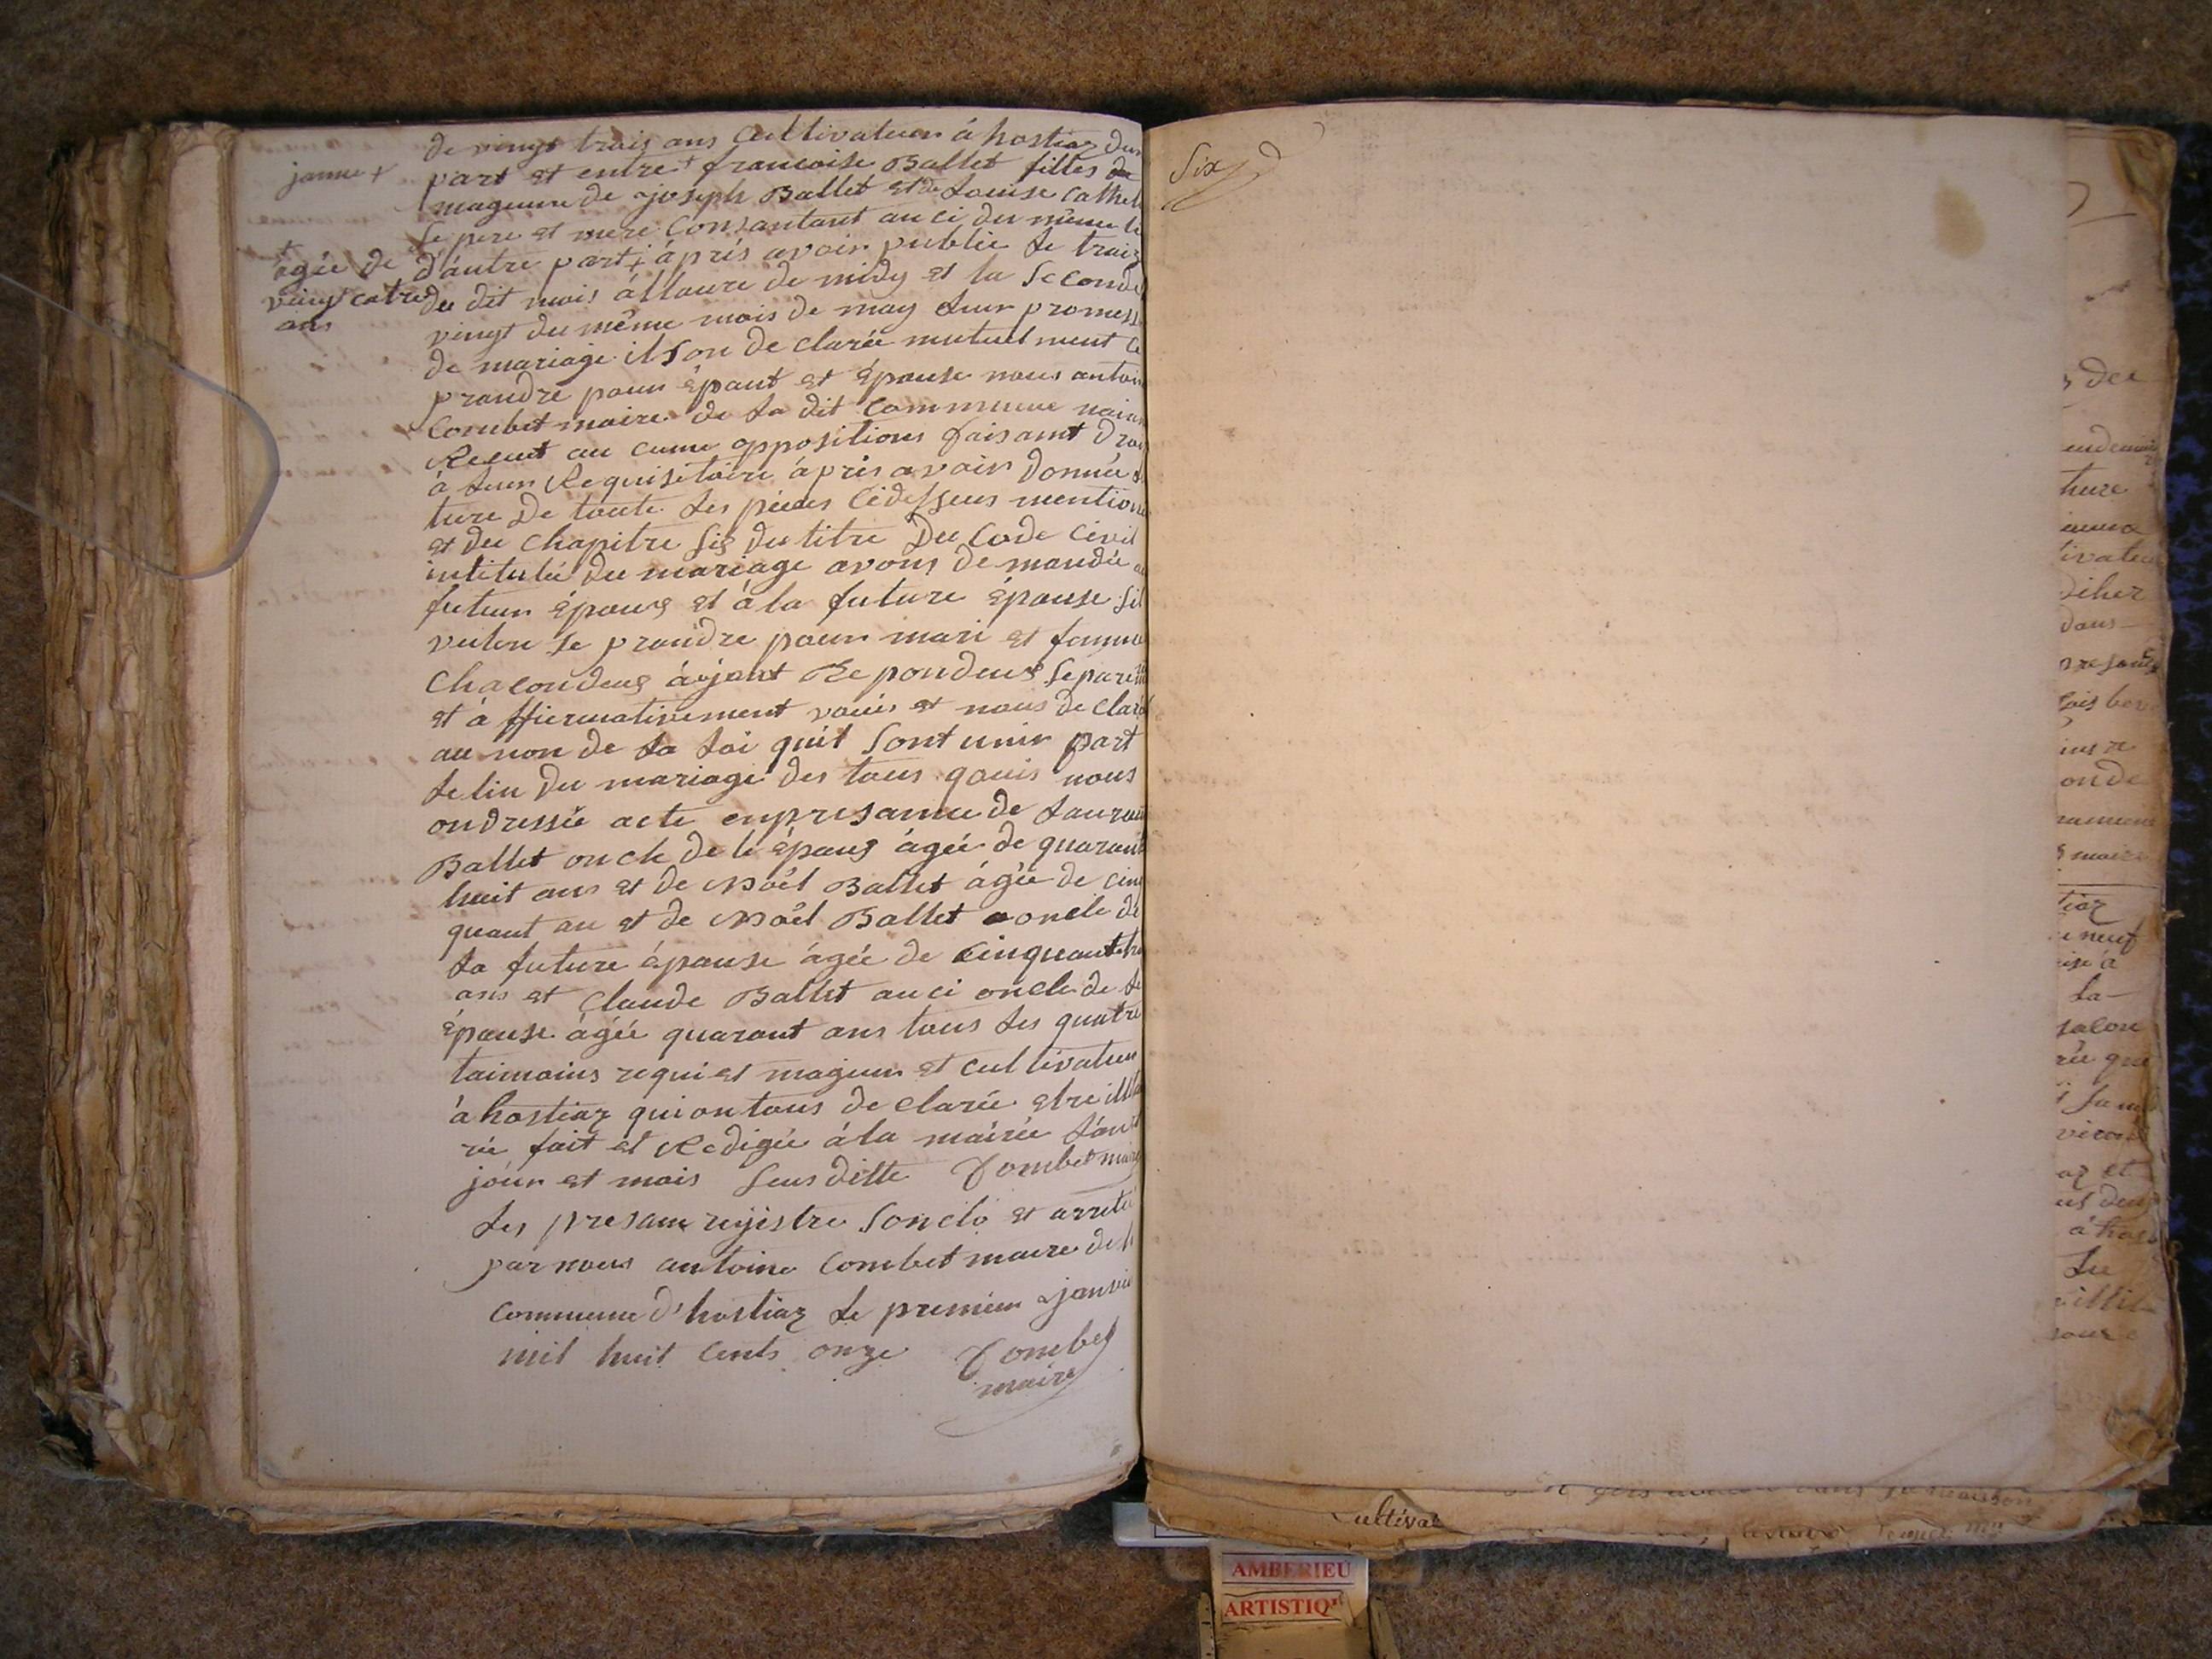 de vingt trais ans Cultivateur á hostiaz dun
janne + part et entre + francoise Ballet filles de
mageure de joseph Ballet et de Louise Cathel
le pere et mere Consantant au ci du même li
+ agée de d'áutre part + áprés avoir publie le traiz
vingt catre du dit mois állaure de midy et la Seconde
ans vingt du même mois de may leur promess
de mariage il son de clarée mutuel ment Ce
prandre pour épout et épouse nous antoin
Combet maire de la dit Commune naian
Recut au cune oppositions faisamt droi
á leur Requisitoire áprés avoir donnée
ture De toute les pieces Cidessus mention
et du Chapitre Sis du titre Du Code Civil
intitulée du mariage avons de mandée au
futeur épous et á la future épouse Sil
veulen se prandre pour mari et famme
Chacondeus áájant Repondeus Separem
et á ffiermativement vouis et nous de claró
au non de la Loi quil Sont unir part
le lin du mariage des tous qouis nous
on dressée acte enpresance de Lauran
Ballet oncle de lé épous ágée de quarant
huit ans et de Noél Ballet ágée de cin
quant an et de Noél Ballet oncle de
la future épouse ágée de Cinquante tr
ans et Claude Ballet au ci oncle de le
épouse ágée quarant ans tous les quatre
taimoins requi et mageur et cultivateur
á hostiaz qui on tous de clarée etre illit
rée fait et Redigée á la mairie lán
jóur et mois Sus ditte Combet maire
Les presam registre Son clo et arreté
par nous antoine Combet maire de l
Commune d'hostiaz le premier janvie
mil huit Cents onze Combet
maire
Six
dee
hure
ivateu
diher
dans
onde
maire
tiaz
neuf
la
rée que
az et
á hos
Le
ultivat
AMBERIEU
ARTISTIQ